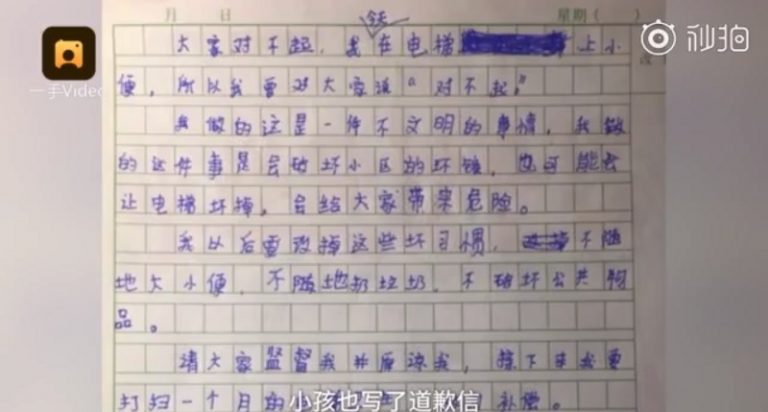 月 日 星期( )
今天
大家对不起，我在电梯上小
便，所以我要对大家说“对不起。”
我做的这是一件不文明的事情，我做
的这件事是会破坏小区的环境，也可能会
让电梯坏掉，会给大家带来危险。
我以后要改掉这些坏习惯，不随
地大小便，不随地扔垃圾，不破坏公共物
品。
请大家监督我并原谅我，接下来我要
打扫一个月的
补偿。
小孩也写了道歉信
一手Video
秒拍